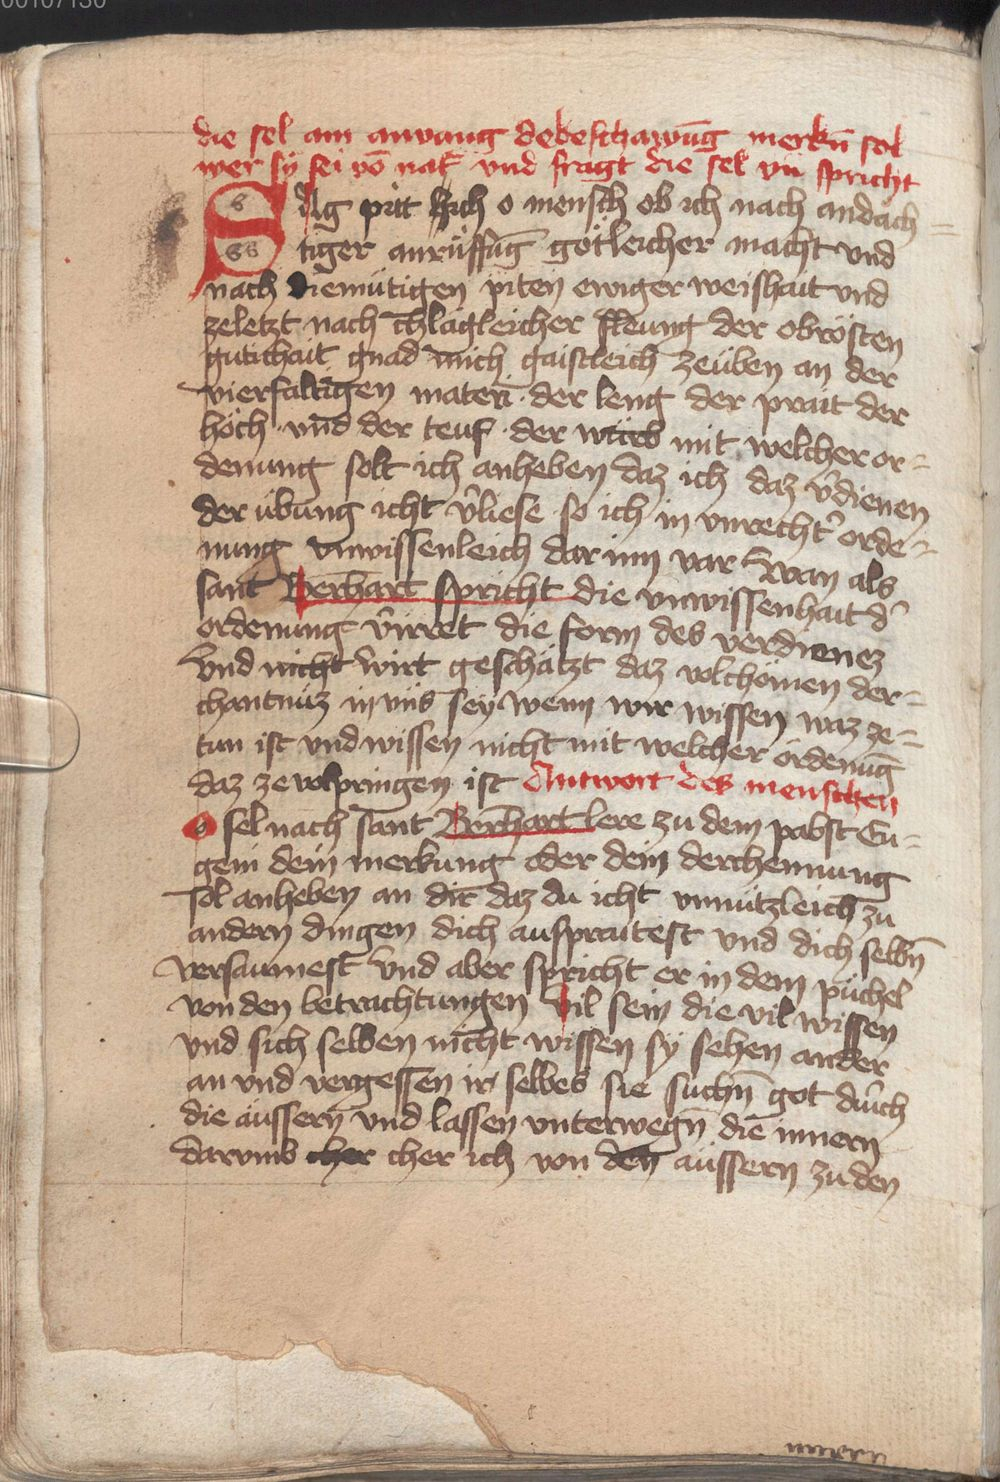 00107130
die sel am anvang debeschawūg merkn̄ sol
wer sy sei vō nat̄ vnd fragt die sel vn̄ spricht
Sag pitt dich o mensch ob ich nach andäch=
tiger anrüffūg götleicher macht vnd
nach diemütigen piten ewiger weishait vnd
zeletzt nach chlagleicher der obrösten
gutichait gnad mich gaistleich zeüben an der
vierfaltigen materī · der leng der prait der
höch · vnd der teuf · der mit welcher or=
denung solt ich anheben daz ich daz v̄dienen
der übung icht v̄liese so ich in vnrecht̄ orde=
nung vnwissenleich dar inn var wan als
sant Berhart spricht die vnwissenhait d̄
ordenung v̄irret die form des verdienez
vnd nicht wirt geschätzt daz volchömen der=
chantnüz in vns sey wenn wir wissen waz ze=
tun ist vnd wissen nicht mit welcher ördenūg
daz ze volpringen ist Antwort des menschen
o sel nach sant Bernhart lere zu dem pabst Eu=
geni dein merkung oder dein derchennung
sol anheben an dir daz du icht vnnützleich zu
andern dingen dich auspraitest vnd dich selbn̄
versaumest vnd aber spricht er in dem püchel
von den betrachtungen vil sein die vil wissen
vnd sich selben nicht wissen sy sehen ander
an vnd vergessen ir selbes sie suchn̄ got durch
die äussern vnd lassen vnterwegn̄ die innern
darvmb cher cher ich von den äussern zu den
innern